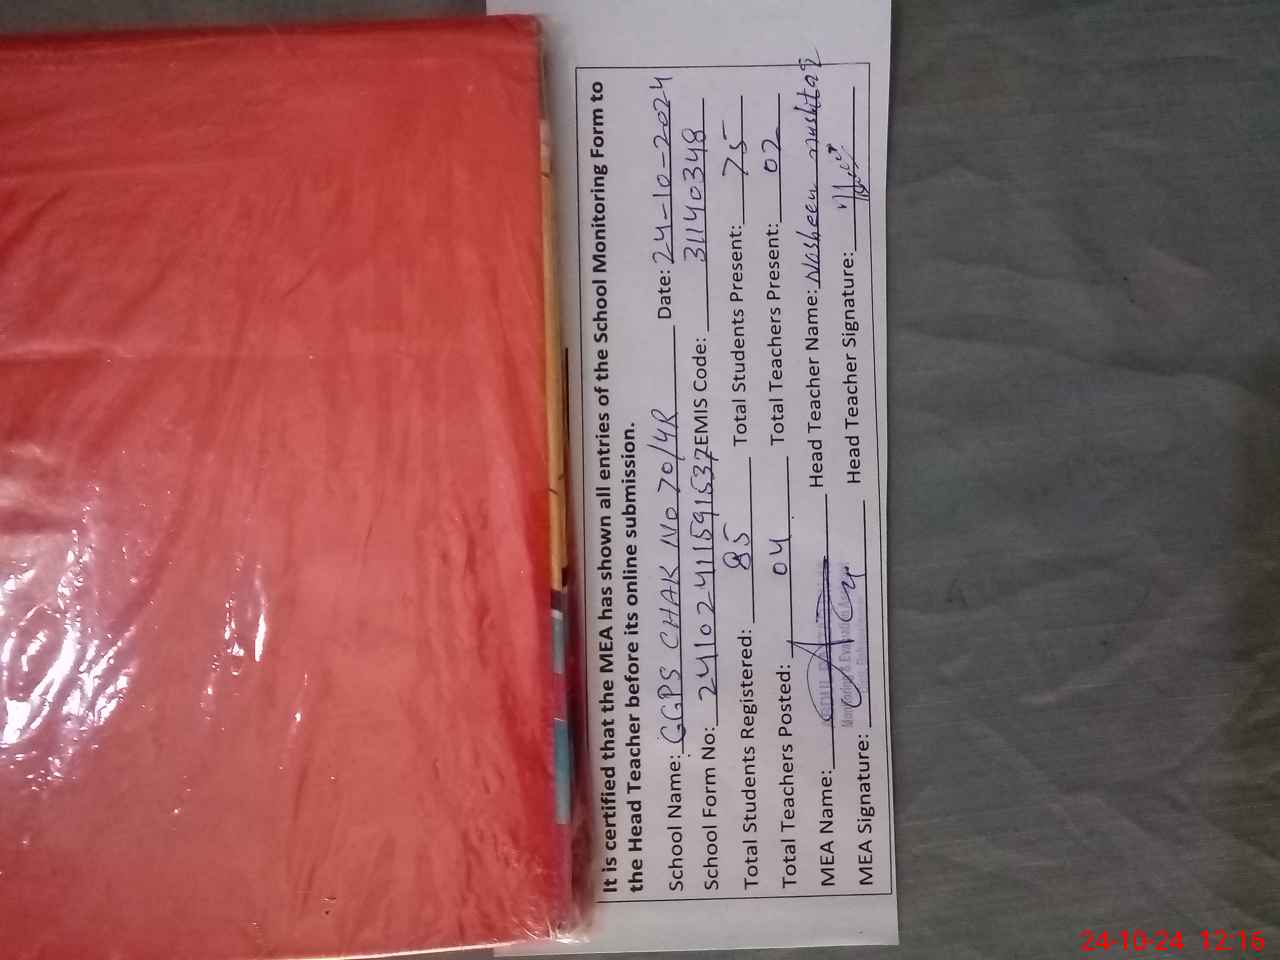 It is certified that the MEA has shown all entries of the School Monitoring Form to
the Head Teacher before its online submission.
School Name: GGPS CHAK NO 70/4R Date: 24-10-2024
School Form No: 24102411591537 EMIS Code: 31140348
Total Students Registered: 85 Total Students Present: 75
Total Teachers Posted: 04 Total Teachers Present: 02
MEA Name: Head Teacher Name: Nosheen Mushtaq
MEA Signature: Head Teacher Signature:
Monitoring & Evaluation
24-10-24 12:16